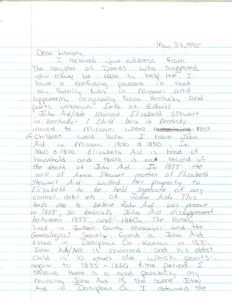 May 23, 1995
Dear Library,
I received your address from
the Register of Deeds who suggested
you may be able to help me. I
have a confusing problem in that
my family was in Missouri and
apparently originally from Kentucky and
parts unknown. Facts as follows:
John Aid/Ade Married Elizabeth Stewart
in Kentucky. 1 child born in Kentucky
moved to Missouri where rest
of children were born. I have John
Aid in Missouri 1840 & 1850. In
1860 & 1870 Elizabeth Aid is head of
households and there is no record of
the death of John Aid. In 1855 the
will of Anna Stewart mother of Elizabeth
Stewart Aid willed her property to
Elizabeth to be held separate of any
control, debt etc of John Aid. This
leads me to believe John Aid was present
in 1855, so basically John Aid disappeared
between 1855 and 1860. The family
lived in Missouri and the
Genealogical Society found a John Aid
listed in Doniphan Co Kansas in 1870.
John Aid/Ade is married and his oldest
child is 10 years old which points
again to 1855 - 1860 time period. I
believe there is a good possibility my
missing John Aid is the same John
Aid in Doniphan Co. I obtained the